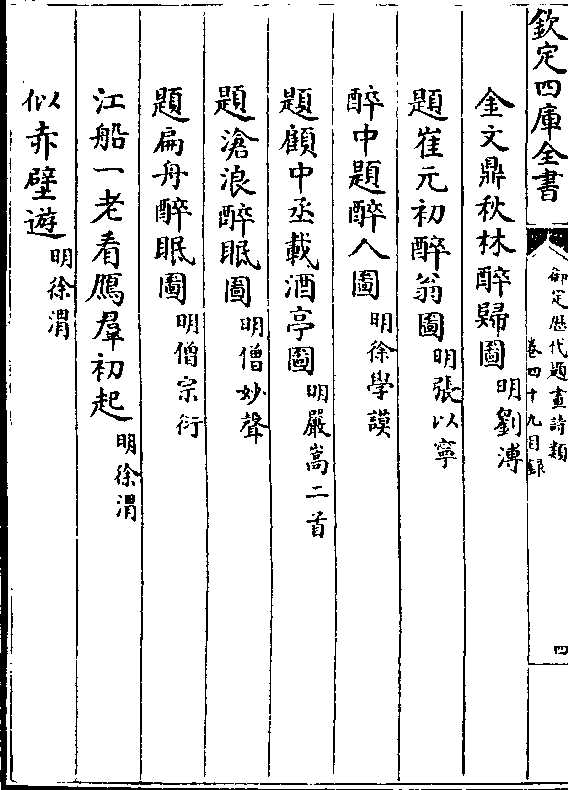 欽定四庫全書
御定歴代題畫詩類
卷四十九目録
四
金文鼎秋林醉歸圖 明劉溥
題崔元初醉翁圖 明張以寧
醉中題醉人圖 明徐學謨
題顧中丞載酒亭圖 明嚴嵩二首
題滄浪醉眠圖 明僧妙聲
題扁舟醉眠圖 明僧宗衍
江船一老看鴈羣初起 明徐渭
似赤壁遊 明徐渭